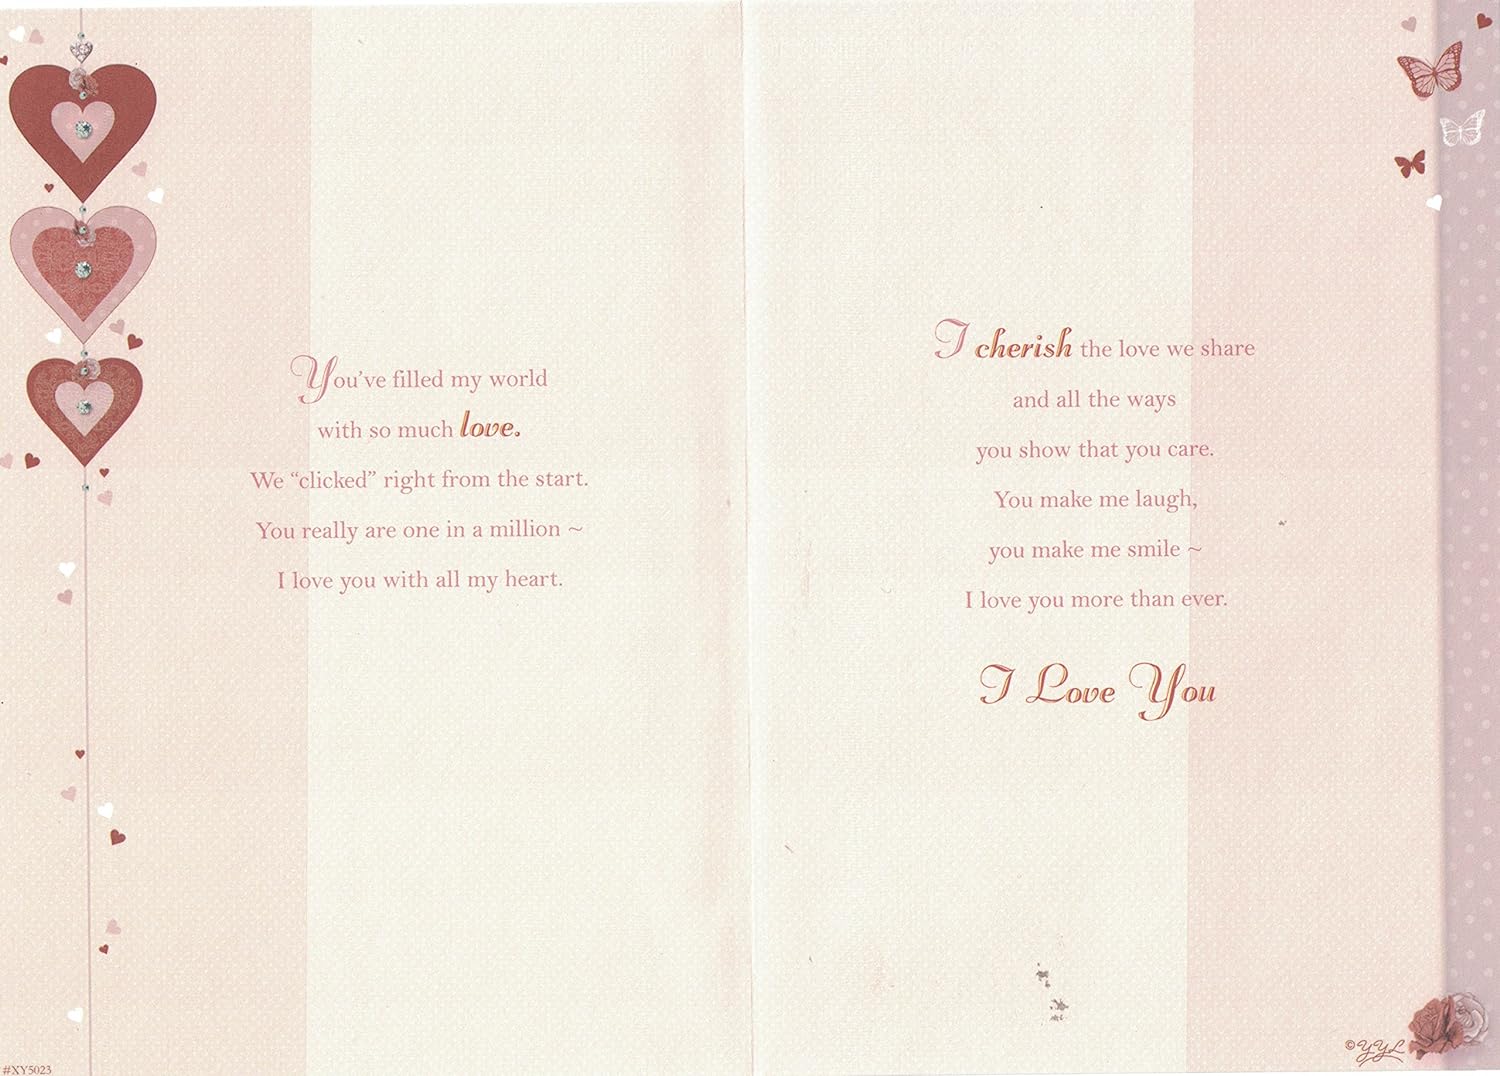 You've filled my world
with so much love.
We “clicked” right from the start.
You really are one in a million ~
I love you with all my heart.
#XY5023
I cherish the love we share
and all the ways
you show that you care.
You make me laugh,
you make me smile ~
I love you more than ever.
I Love You
©YYL